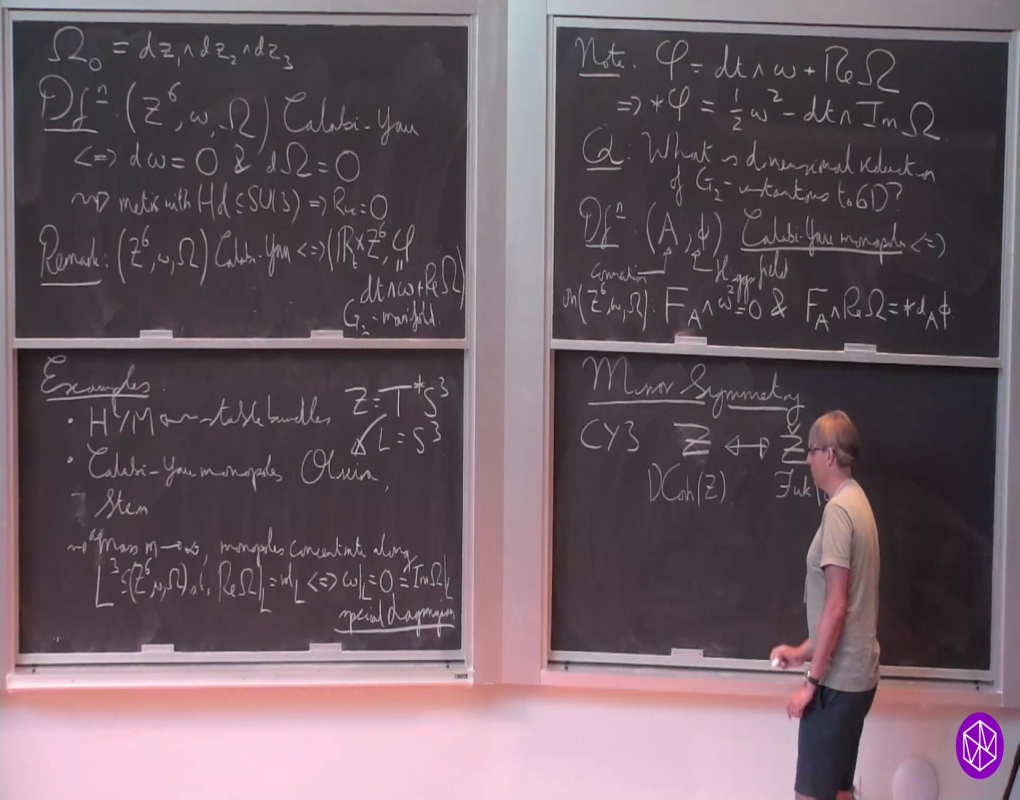 Ω₀ = dz₁∧dz₂∧dz₃
Dfⁿ. (Z⁶, ω, Ω) Calabi-Yau
<=> dω = 0 & dΩ = 0
⇝ metric with Hol ⊆ SU(3) => Ric = 0
Remark: (Z⁶, ω, Ω) Calabi-Yau <=> (ℝₜ×Z⁶, φ
"
dt∧ω+ReΩ)
G₂-manifold.
Examples:
• HYM on stable bundles
Z = T*S³
L = S³
• Calabi-Yau monopoles Oliveira,
Stein
⇝ as mass m → ∞, monopoles concentrate along
L³ ⊆ (Z⁶, ω, Ω) s.t. ReΩ|_L = vol_L <=> ω|_L = 0 = ImΩ|_L
special Lagrangian
Note. φ = dt∧ω + ReΩ
=> *φ = ½ω² - dt∧ImΩ
Q: What is dimensional reduction
of G₂-instantons to 6D?
Dfⁿ. (A, ϕ) Calabi-Yau monopole <=>
connection Higgs field
on (Z⁶, ω, Ω). F_A∧ω² = 0 & F_A∧ReΩ = *d_Aϕ.
Mirror Symmetry
CY3 Z ↔ Ž
DCoh(Z). Fuk(